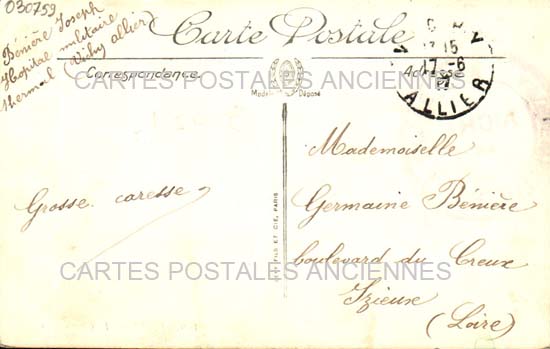 030759
Bénière Joseph
Hopital militaire
thermal (Vichy allier)
Carte Postale
Correspondance
Adresse
Modèle Déposé
17-6
ALLIER
CARTES POSTALES ANCIENNES
Mademoiselle
Germaine Bénière
boulevard du Creux
Izieux
(Loire)
Grosse caresse
FILS ET CIE, PARIS
CARTES POSTALES ANCIENNES